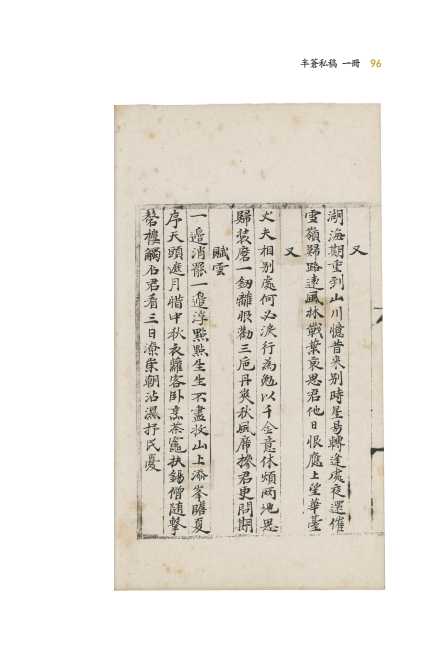 半蒼私稿 一冊 96
又
湖海期重到山川憶昔來別時星易轉逢處夜還催
雪嶺歸路遠風林戰葉哀思君他日恨應上望華臺
又
丈夫相別處何必淚行為勉以千金意休煩兩地思
歸裝磨一劒離恨勸三卮丹爽秋風席攙君更問期
賦雲
一邊消罷一邊浮點點生生不盡收山上添峯瞻夏
序天頭遮月惜中秋衣蘿客臥烹茶竈扶錫僧隨擊
磬樓觸石君看三日潦崇朝沾濕抒民憂